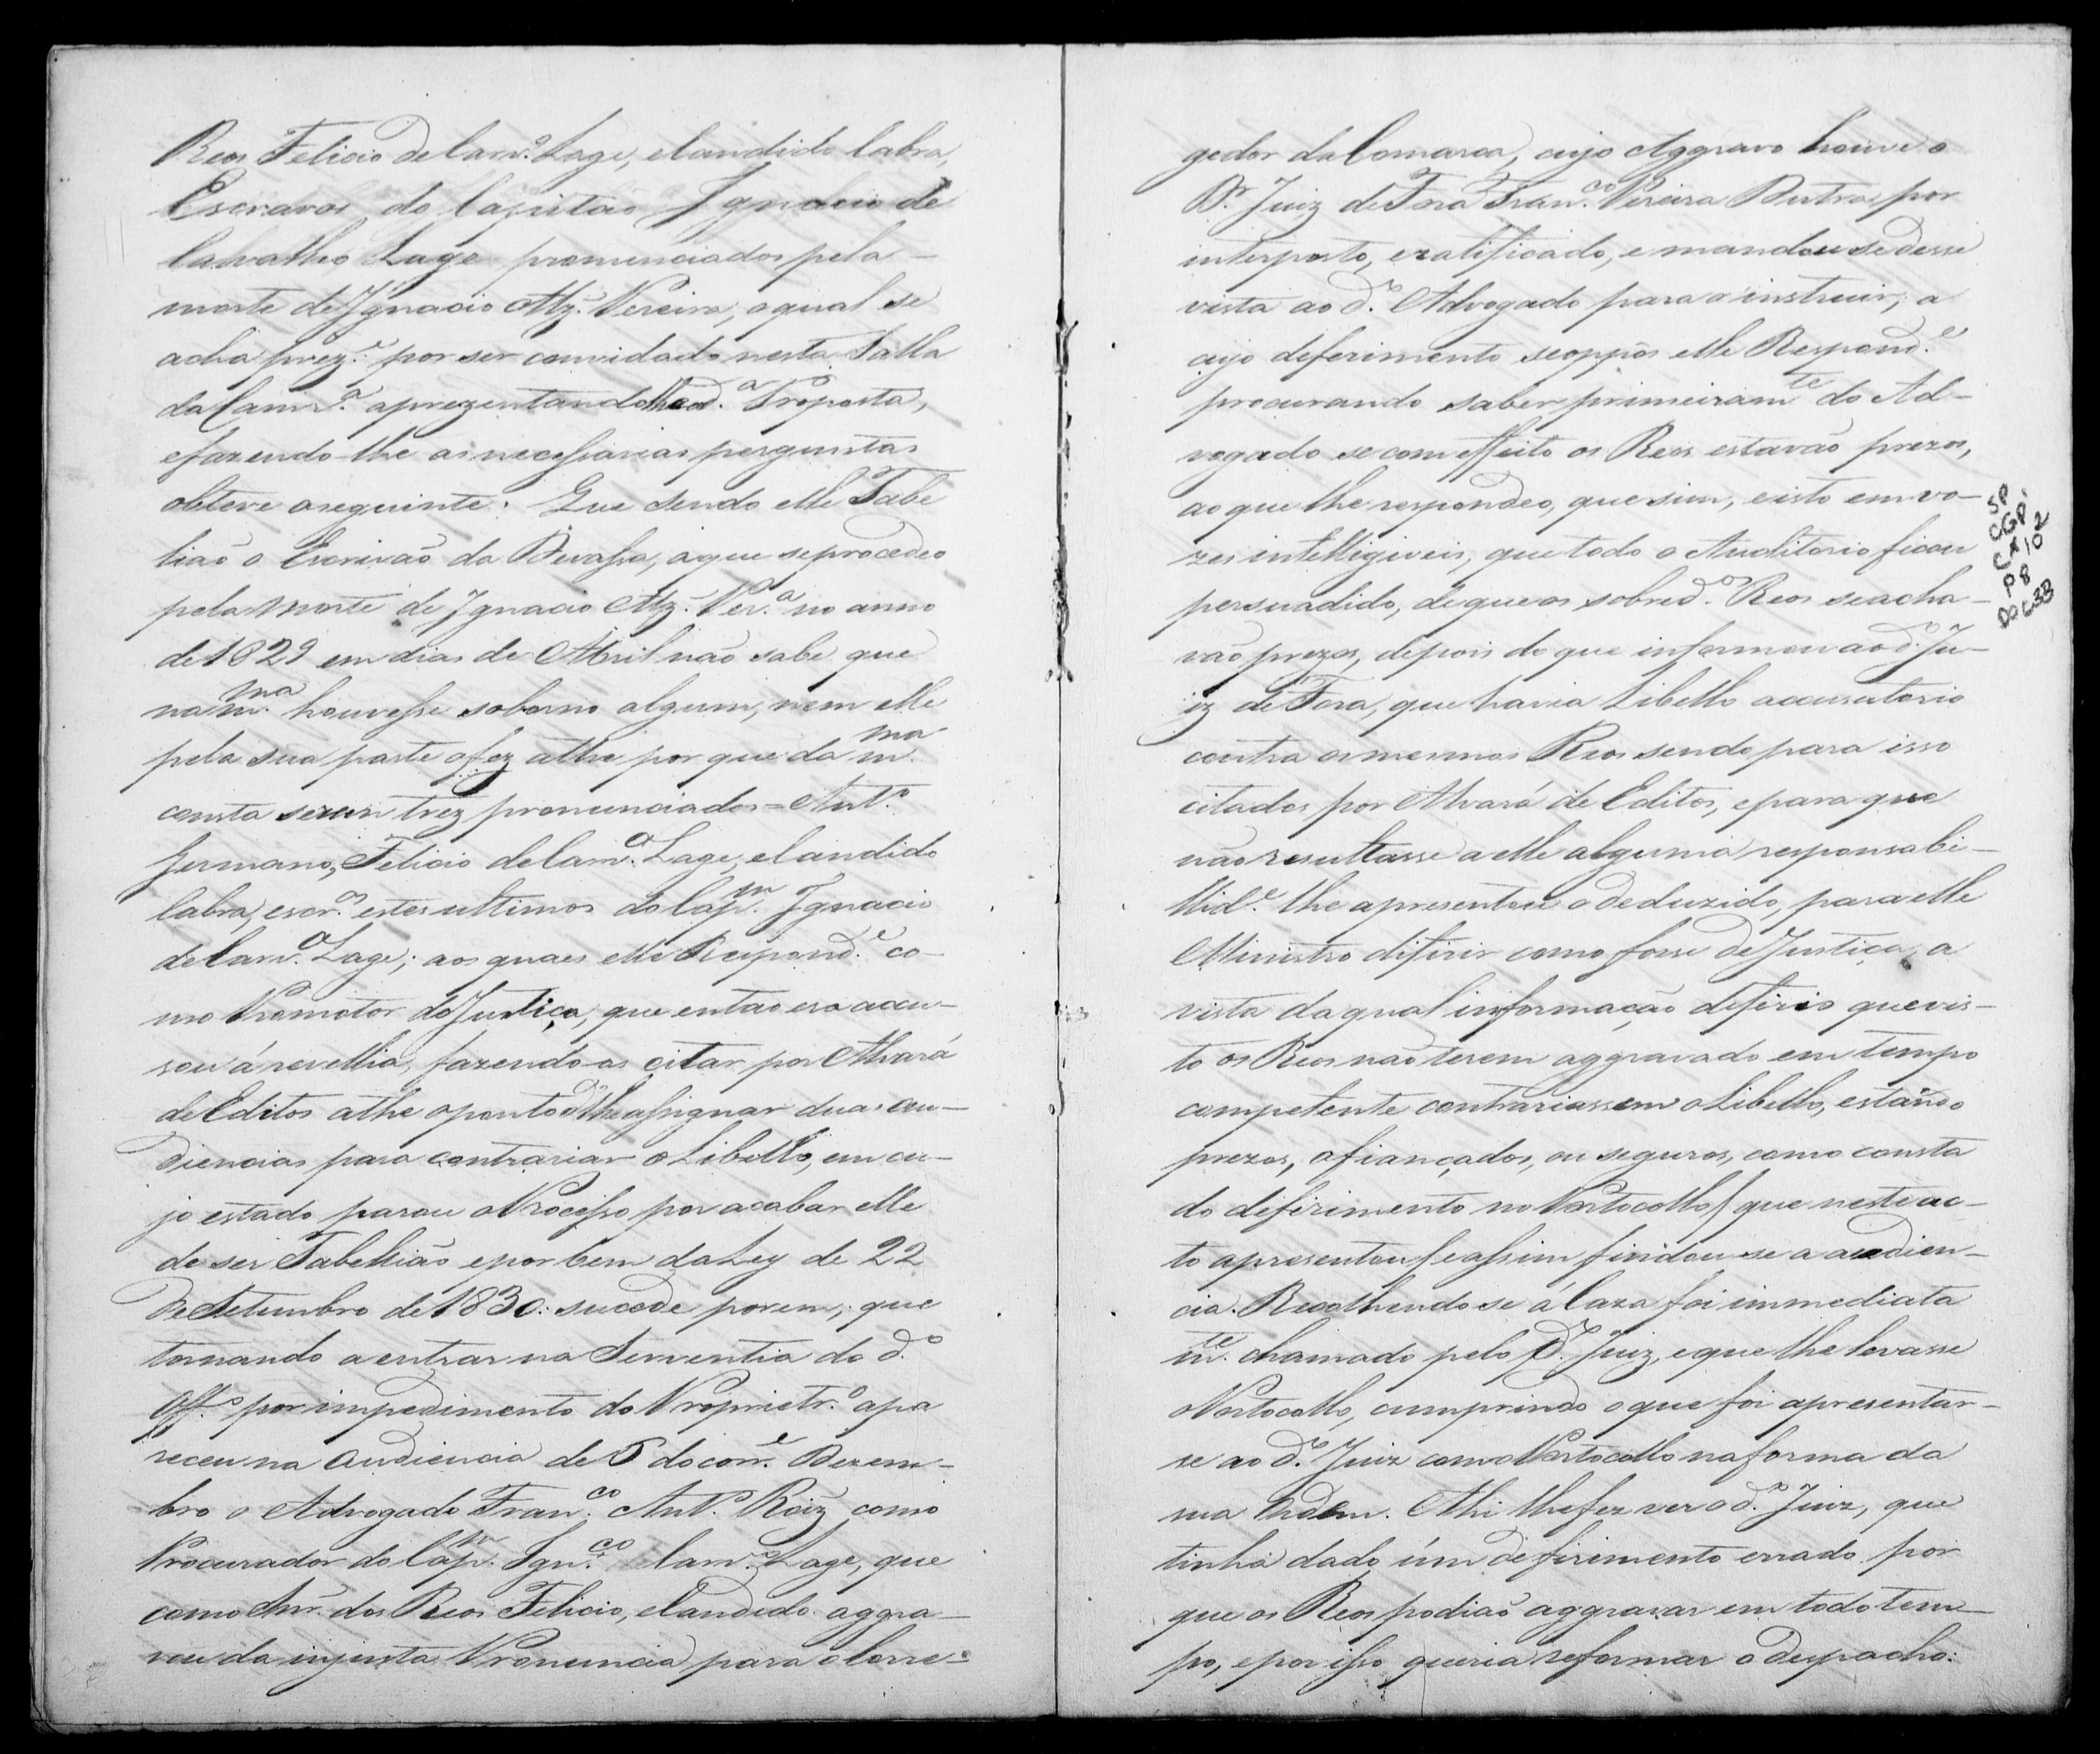 Reos Felicio de Carv.º Lage, e Candido Cabra,
Escravos do Capitão Ignacio de
Carvalho Lage pronunciados pela
morte de Ignacio Alz. Pereira, o qual se
acha prez.e por ser convidado nesta Salla
da Camr.a aprezentandolhe a d.a Proposta,
e fazendo-lhe as necessarias perguntas
obteve a seguinte: Que sendo elle Tabe
lião o Escrivão da Devassa, a que se procedeo
pela morte de Ignacio Alz. Per.a no anno
de 1829 em dias de Abril não sabe que
na m.ma houvesse soborno algum, nem elle
pela sua parte o fez athe por que da m.ma
consta serem trez pronunciados = Ant.º
Germano, Felicio de Carv.º Lage, e Candido
Cabra, escr.os estes ultimos do Cap.m Ignacio
de Carv.º Lage; aos quaes elle Respond.e co-
mo Promotor da Justiça, que então era accu-
sou á revellia, fazendo-os citar por Alvará
de Editos athe o ponto d'lhe assignar duas au-
diencias para contrariar o Libello, em cu-
jo estado parou o Processo por acabar elle
de ser Tabellião e por bem da Ley de 22
de Setembro de 1830: sucede porem, que
tornando a entrar na Serventia do d.º
Off.º por impedimento do Proprietr.º apa
receu na audiencia de 5 do corr.e Dezem-
bro o Advogado Fran.co Ant.º Roiz como
Procurador do Cap.m Ign.co Carv.º Lage, que
como Snr. dos Reos Felicio, e Candido aggra-
vou da injusta Pronuncia para o Corre-
gedor da Comarca, cujo Aggravo houve o
D.r Juiz de Fora Fran.co Pereira Dutra por
interposto, e ratificado, e mandou se desse
vista ao d.º Advogado para o instruir, a
cujo deferimento se oppôs elle Respond.e
procurando saber primeiram.te do Ad-
vogado se com effeito os Reos estavão prezos,
ao que lhe respondeo, que sim, e isto em vo-
zes intelligiveis, que todo o Auditorio ficou
persuadido, de que os sobred.os Reos se acha-
vão prezos, depois do que informou ao d.º Ju-
iz de Fora, que havia Libello accusatorio
contra os mesmos Reos sendo para isso
citados por Alvará de Editos, e para que
não resultasse a elle alguma responsabi-
llid.e lhe apresentou o deduzido, para elle
Ministro difirir como fosse de Justiça, a
vista da qual informação defirio que vis-
to os Reos não terem aggravado em tempo
competente contrariassem o Libello, estando
prezos, afiançados, ou seguros, como consta
do defirimento no Protocollo / que neste ac-
to apresentou / e assim findou-se a audien-
cia. Recolhendo se á Caza foi immediata
m.te chamado pelo d.º Juiz, e que lhe levasse
o Protocollo, cumprindo o que foi apresentar-
se ao d.º Juiz com o Protocollo na forma da
sua ordem. Ahi lhe fez ver o d.º Juiz, que
tinha dado úm defirimento errado por
que os Reos podião aggravar em todo tem-
po, e por isso queria reformar o despacho:
SP.
CGP.
CX 102
P 8
DOC 33